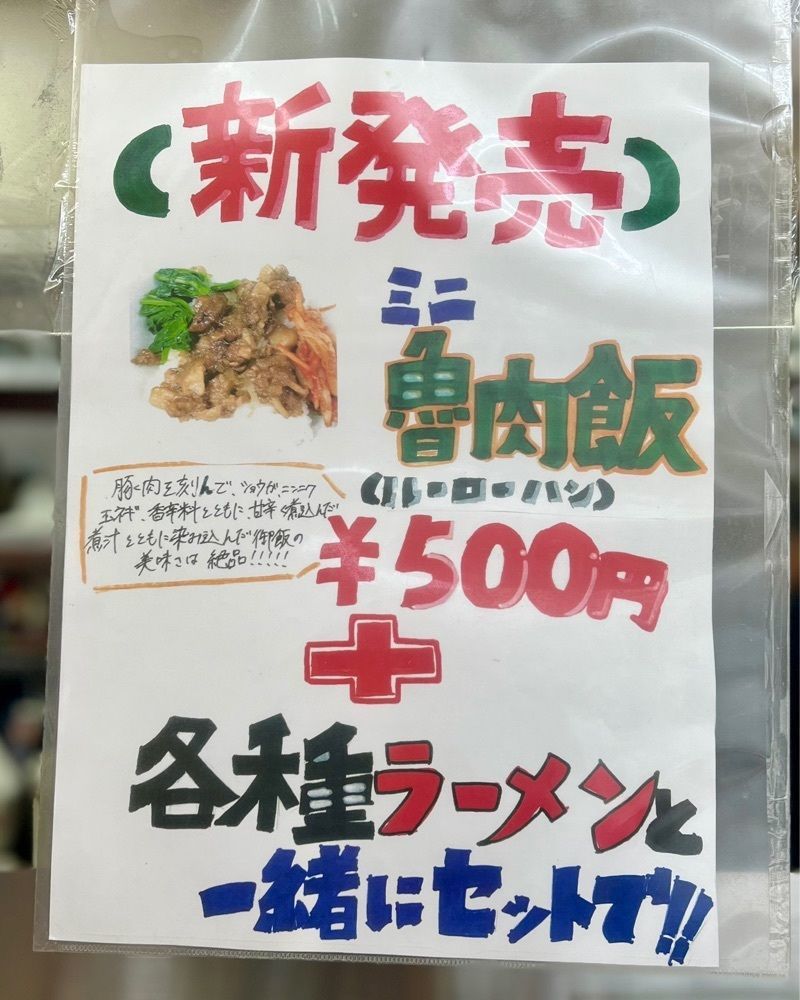 (新発売)
ミニ
魯肉飯
(ルーローハン)
豚肉を刻んで、ショウガ、ニンニク
玉ネギ、香辛料とともに甘辛く煮込んだ
煮汁とともに染み込んだ御飯の
美味さは絶品!!!!!
¥500円
+
各種ラーメンと
一緒にセットで!!